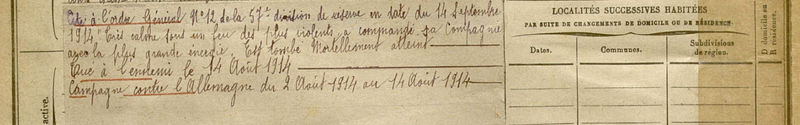 Cité à l'ordre Général N° 12 de la 57e division de réserve en date du 14 Septembre
1914 "Très calme sous un feu des plus violents a commandé sa Compagnie
avec la plus grande énergie. Est tombé Mortellement atteint
Tué à l'ennemi le 14 Août 1914
Campagne contre l'Allemagne du 2 Août 1914 au 14 Août 1914
active.
LOCALITÉS SUCCESSIVES HABITÉES
PAR SUITE DE CHANGEMENTS DE DOMICILE OU DE RÉSIDENCE.
Dates.
Communes.
Subdivisions
de région.
D domicile ou
R résidence.